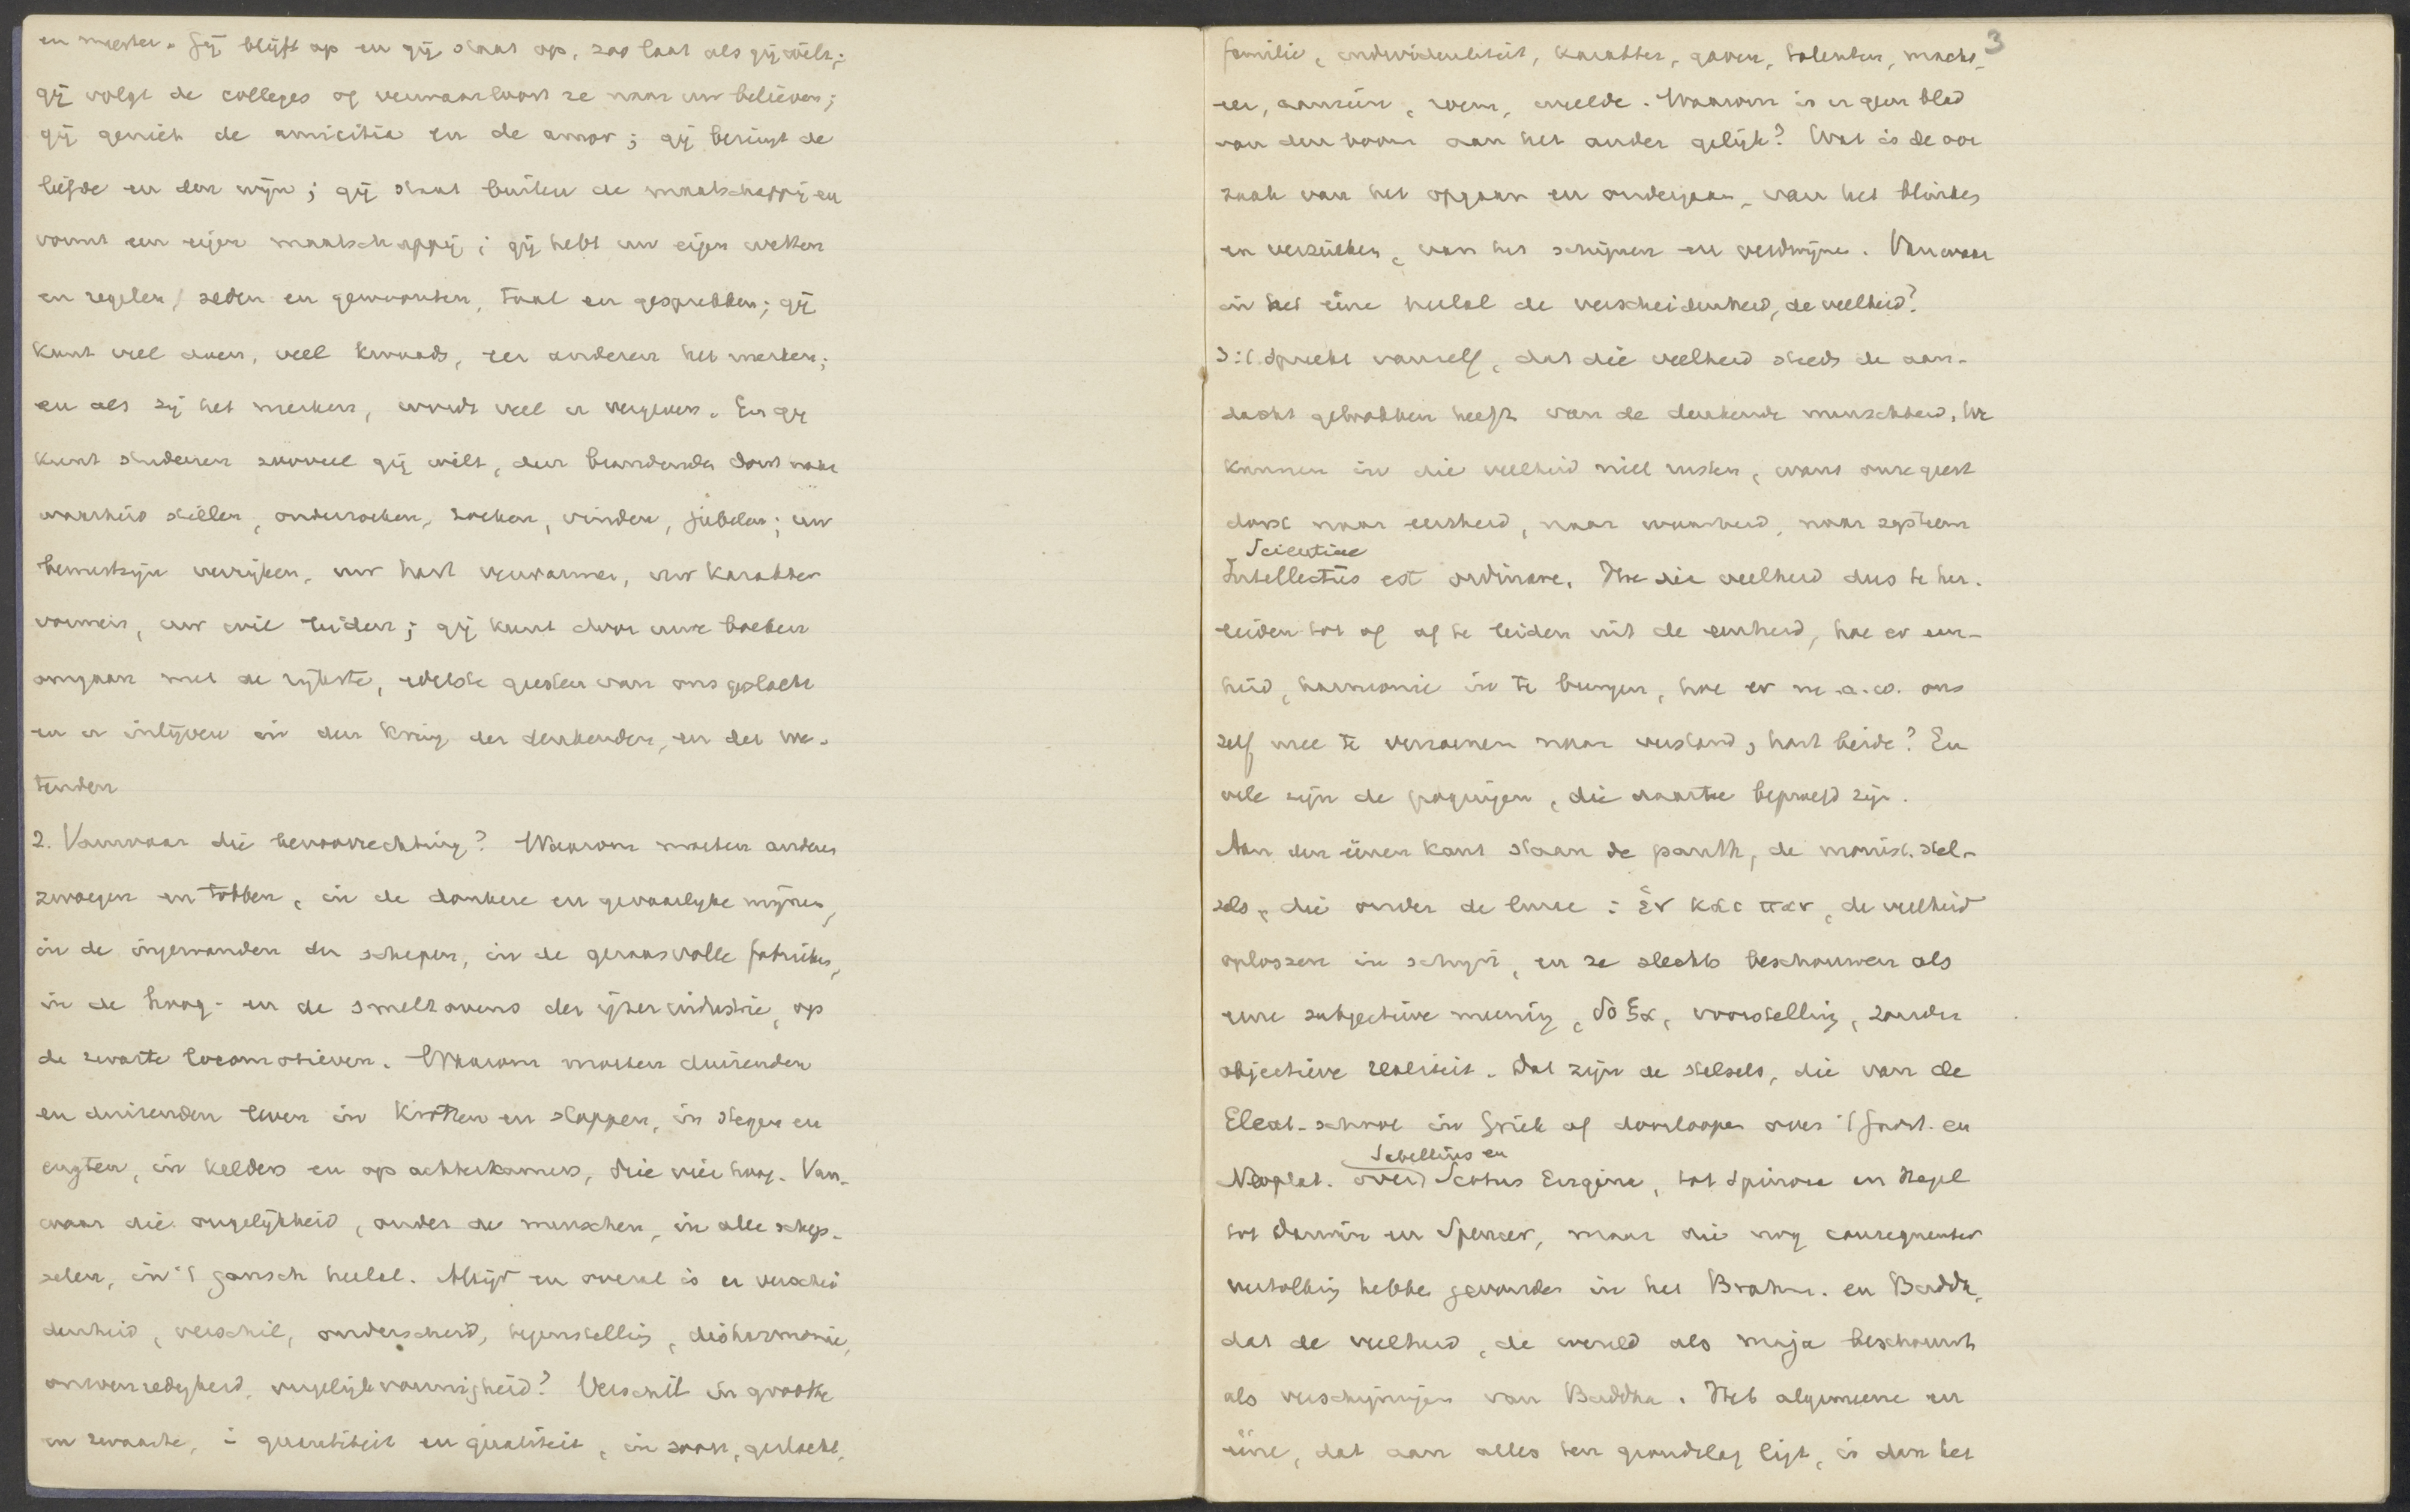 en meester. Gij blijft op en gij staat op, zoo laat als gij wilt;
gij volgt de colleges of verwaarloost ze naar uw believen;
gij geniet de amicitia en de amor; gij bezingt de
liefde en den wijn; gij staat buiten de maatschappij en
vormt een eigen maatschappij; gij hebt uw eigen wetten
en regelen, zeden en gewoonten, taal en gesprekken; gij
kunt veel doen, veel kwaads, eer anderen het merken;
en als zij het merken, wordt veel u vergeven. En gij
kunt studeren zooveel gij wilt, den brandenden dorst naar
waarheid stillen, onderzoeken, zoeken, vinden, jubelen; uw
bewustzijn verrijken, uw hart verwarmen, uw karakter
vormen, uw wil leiden; gij kunt door uwe boeken
omgaan met de rijkste, edelste geesten van ons geslacht
en u inlijven in den kring der denkenden, en der we-
tenden
2. Vanwaar die bevoorrechting? Waarom moeten anderen
zwoegen en tobben, in de donkere en gevaarlijke mijnen,
in de ingewanden der schepen, in de geraasvolle fabrieken,
in de hoog- en de smeltovens der ijzerindustrie, op
de zwarte locomotieven. Waarom moeten duizenden
en duizenden leven in krotten en sloppen, in stegen en
engten, in kelders en op achterkamers, drie vier hoog. Van-
waar die ongelijkheid, onder de menschen, in alle schep-
selen, in 't gansch heelal. Altijd en overal is er verschei
denheid, verschil, onderscheid, tegenstelling, disharmonie,
onevenredigheid, ongelijkvormigheid? Verschil in grootte
en zwaarte, in quantiteit en qualiteit, in soort, geslacht,
3
familie, individualiteit, karakter, gaven, talenten, macht,
eer, aanzien, roem, weelde. Waarom is er geen blad
van den boom aan het ander gelijk? Wat is de oor
zaak van het opgaan en ondergaan, van het blinken
en verzinken, van het schijnen en verdwijnen. Vanwaar
in het ééne heelal de verscheidenheid, de veelheid?
3. 't Spreekt vanzelf, dat die veelheid steeds de aan-
dacht getrokken heeft van de denkende menschheid. We
kunnen in die veelheid niet rusten, want onze geest
dorst naar eenheid, naar waarheid, naar systeem
Scientiae
Intellectus est ordinare. Hoe die veelheid dus te her-
leiden tot of af te leiden uit de eenheid, hoe er een-
heid, harmonie in te brengen, hoe er m.a.w. ons
zelf mee te verzoenen naar verstand, hart beide? En
vele zijn de pogingen, die daartoe beproefd zijn.
Aan den éénen kant staan de panth, de monist. stel-
sels, die onder de leuze: ἑν και παν, de veelheid
oplossen in schijn, en ze slechts beschouwen als
eene subjectieve meening, δοξα, voorstelling, zonder
objectieve realiteit. Dat zijn de stelsels, die van de
Eleat. school in Griek af doorloopen over 't Gnost. en
Sabellius en
Neoplat. over Scotus Erigena, tot Spinoza en Hegel
tot Darwin en Spencer, maar die nog consequenter
vertolking hebben gevonden in het Brahm. en Buddh,
dat de veelheid, de wereld als maja beschouwt
als verschijningen van Buddha. Het algemeene en
ééne, dat aan alles ten grondslag ligt, is dan het